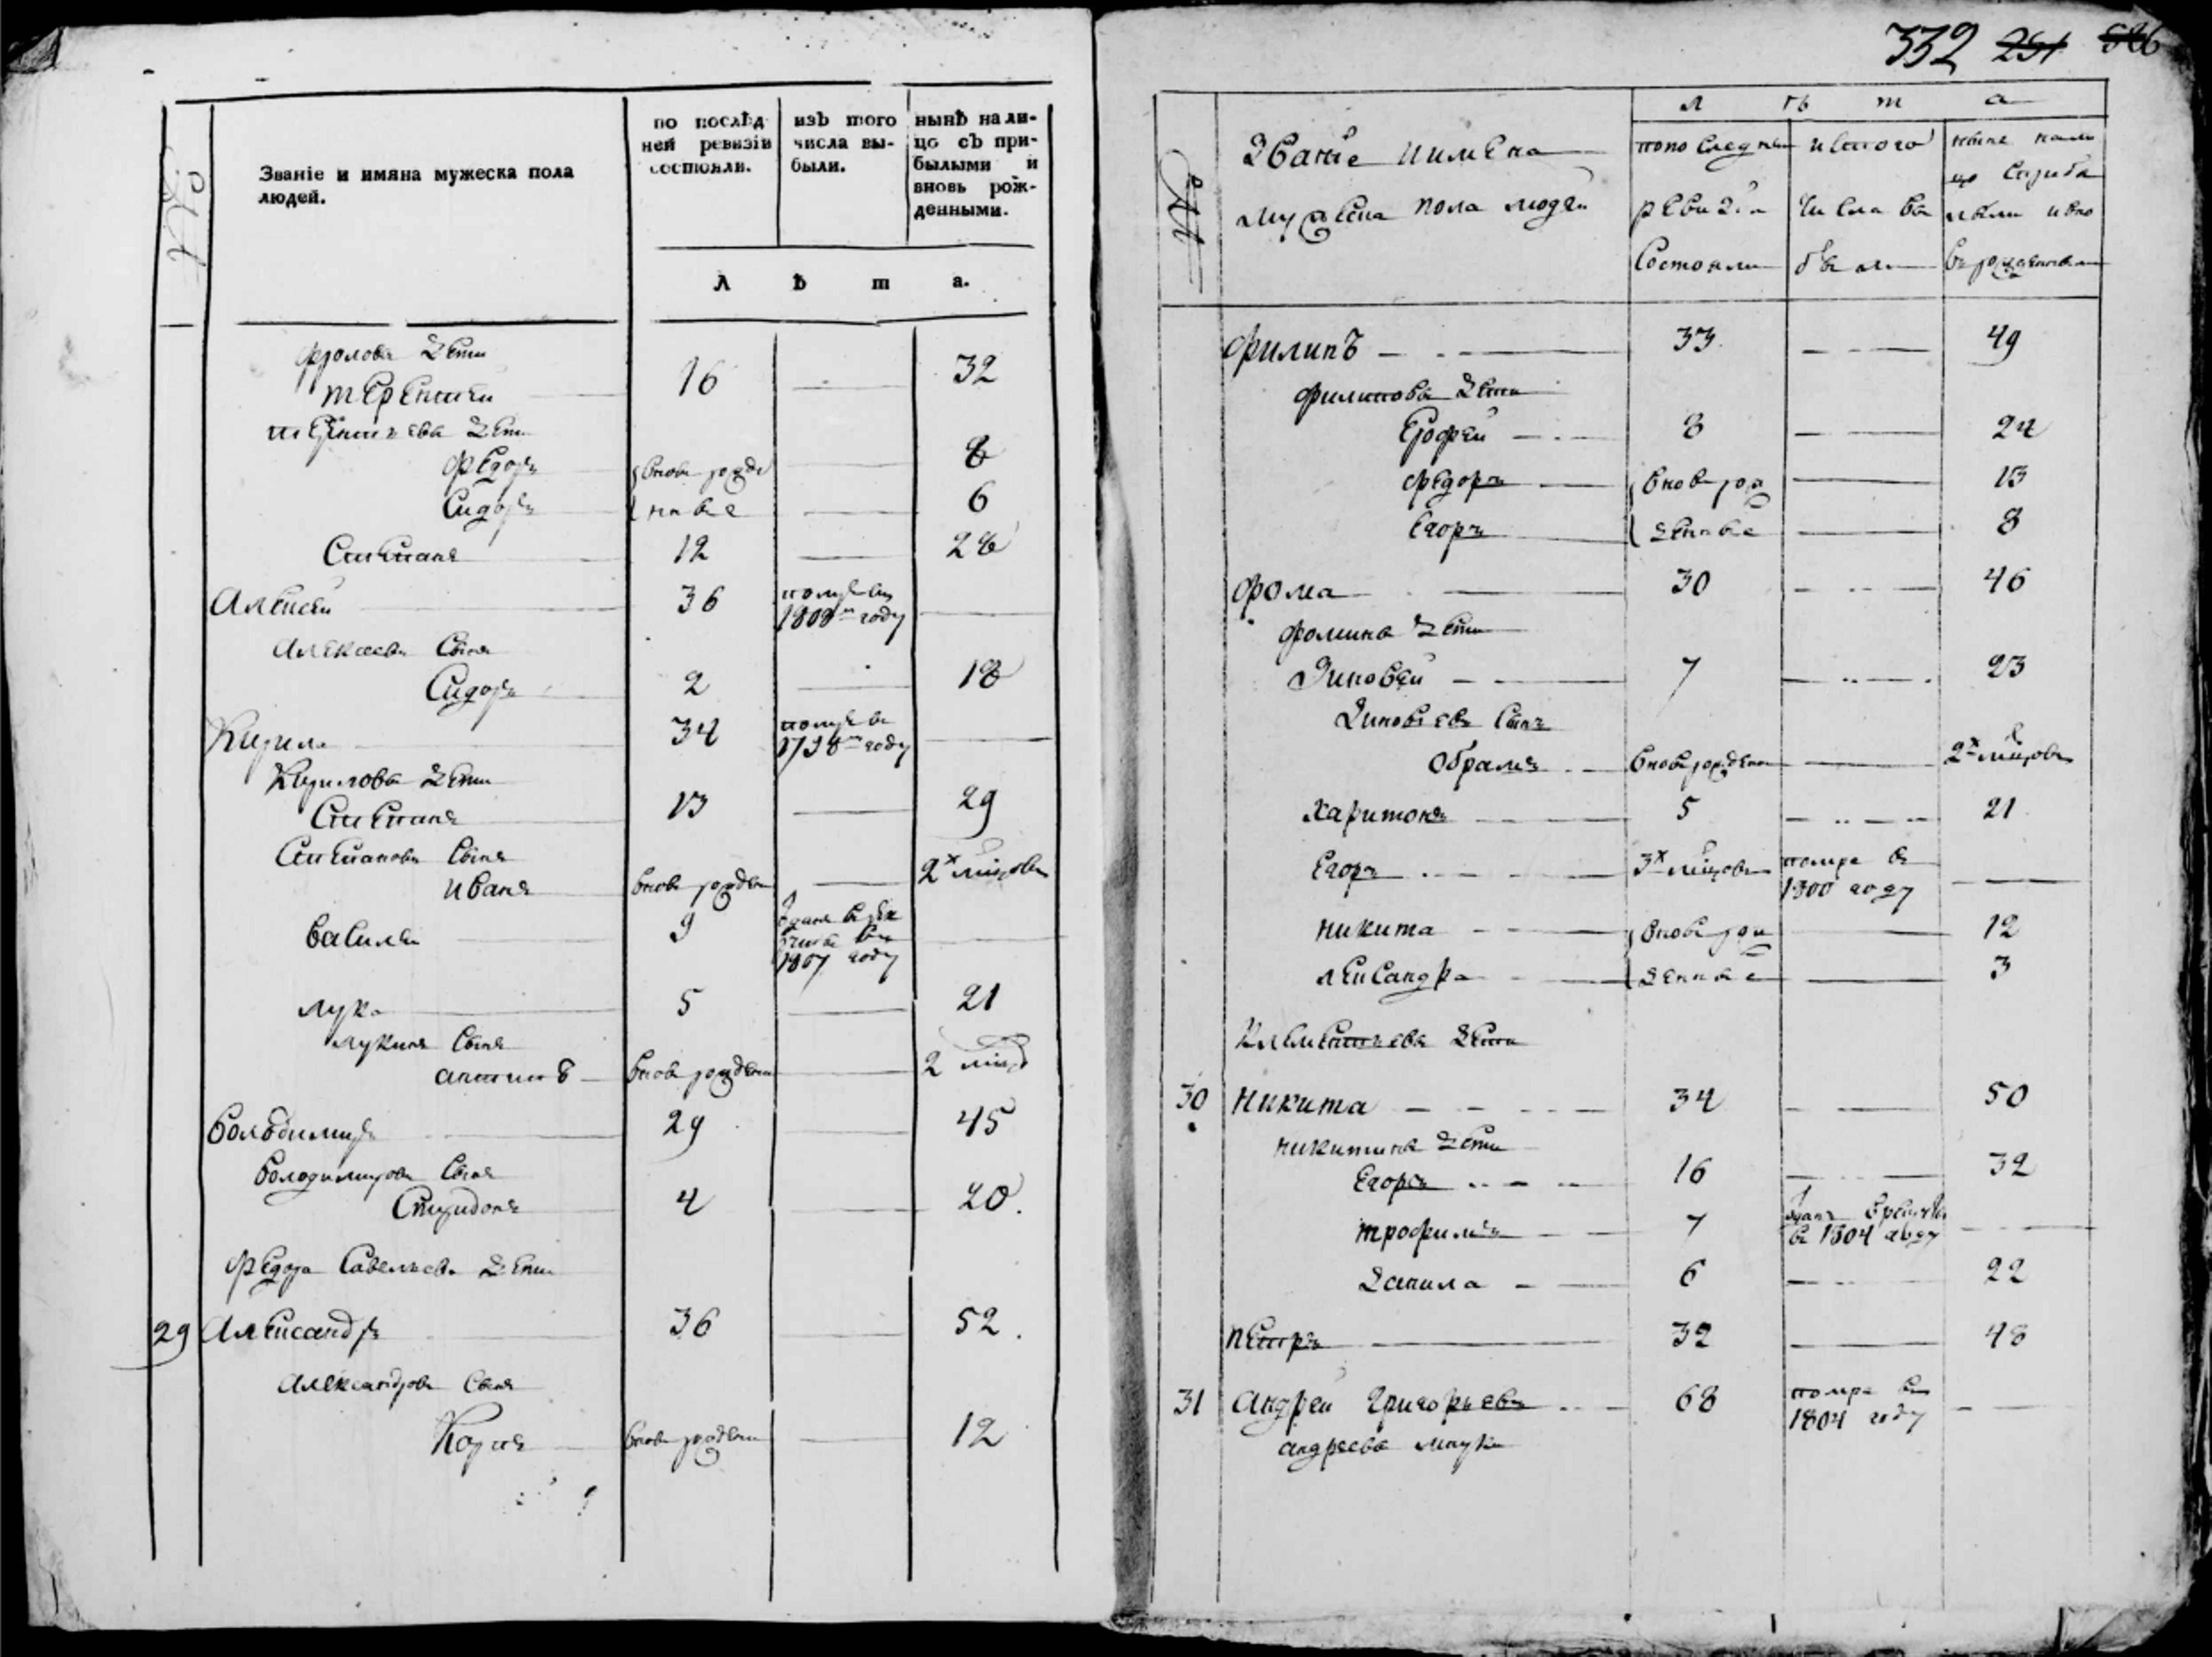 332 251
№
Званіе и имяна мужеска пола
людей.
по послѣд
ней ревизіи
состояли.
изъ того
числа вы-
были.
нынѣ нали-
цо съ при-
былыми и
вновь рож-
денными.
л ѣ т а.
Фролова дети
терентеи 16 32
терентьева дети
Федоръ вновь рожде 8
Сидоръ нные 6
Степанъ 12 28
Алексеи 36 помре въ
1808м году
Алексеевъ Сынъ
Сидоръ 2 18
Кирила 34 помре въ
1798м году
Кирилова дети
Степанъ 13 29
Степановъ Сынъ
иванъ вновь рожден 2х мцовъ
василеи 9 отданъ в рек
руты въ
1807 году
лука 5 21
лукинъ Сынъ
антипъ вновь рожденъ 2 мцо
Володимиръ 29 45
Володимировъ Сынъ
Спиридонъ 4 20.
Федора Савельева дети
29 Александръ 36 52.
Александровъ Сынъ
Карпъ вновь рожденъ 12
№
Звание имена
мужеска пола людеи
л ѣ т а
попоследнеи
ревизiи
Состояли
истого
числа вы
были
ныне нали
цо Сприбы
лыми ивно
вьрожденными
Филипъ 33 49
Филипова дети
Ерофеи 8 24
Федоръ вновь рож 13
Егоръ денные 8
Фома 30 46
Фомина дети
Зиновеи 7 23
Зиновьевъ Сынъ
Обрамъ вновь рожденъ 2х мцовъ
Харитонъ 5 21
Егоръ 3х мцовъ помре въ
1800 году
никита вновь рож 12
лександра денные 3
Клементьева дети
30 Никита 34 50
никитина дети
Егоръ 16 32
трофимъ 7 отданъ Врекруты
въ 1804 году
данила 6 22
петръ 32 48
31 Андреи Григорьевъ 68 помре въ
1804 году
андреева внуки